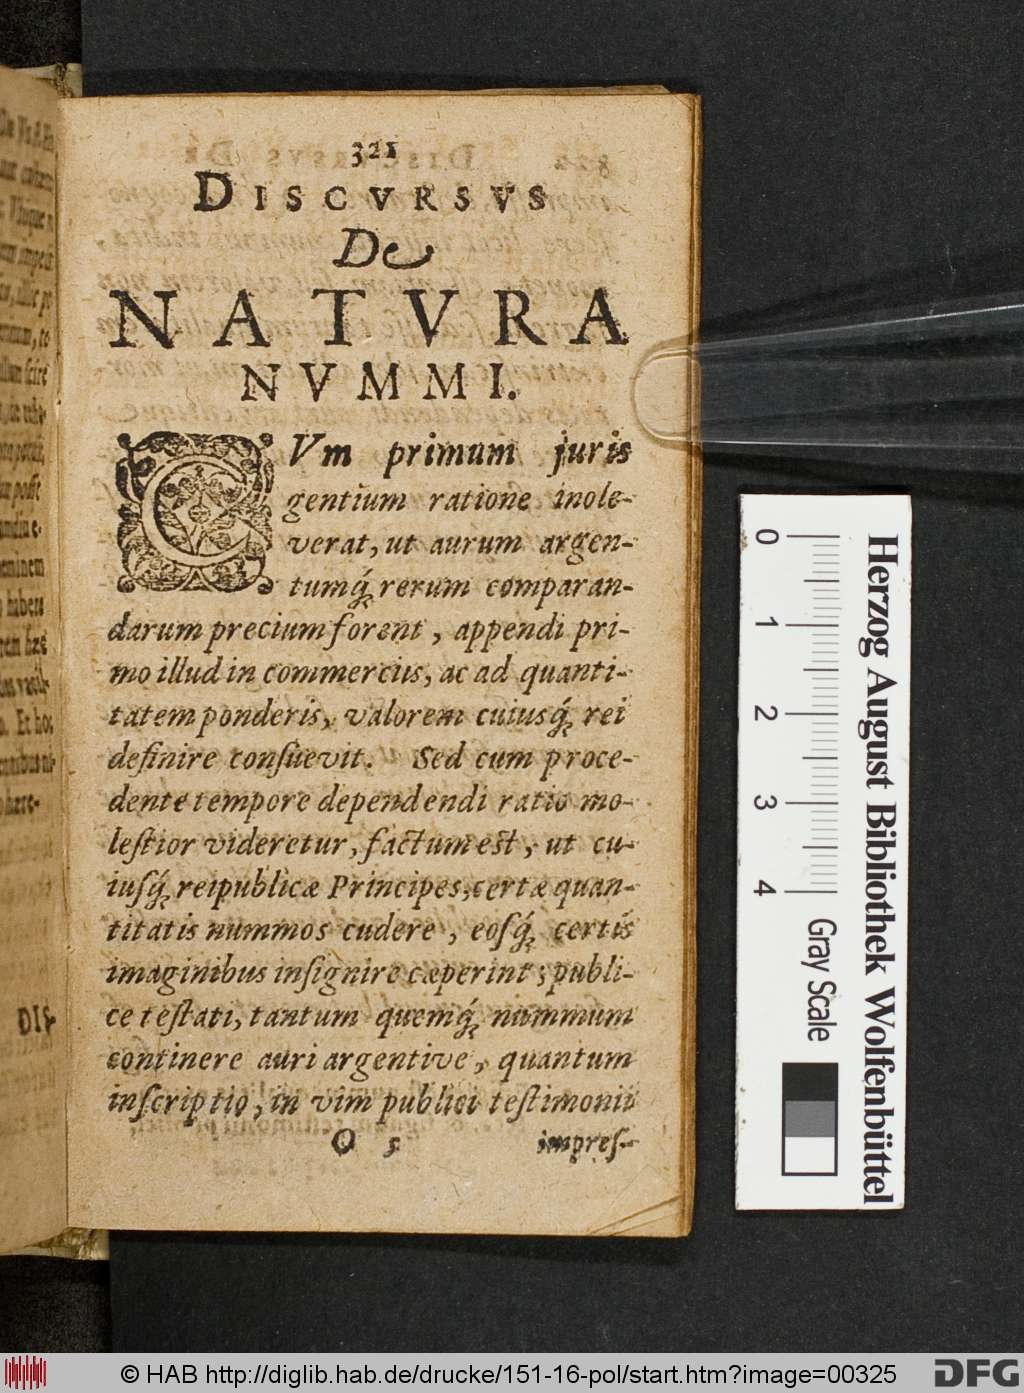 321
DISCVRSVS
De
NATVRA
NVMMI.
CVm primum juris
gentium ratione inole-
verat, ut aurum argen-
tumq́; rerum comparan-
darum precium forent, appendi pri-
mo illud in commerciis, ac ad quanti-
tatem ponderis, valorem cuiusq́; rei
definire consuevit. Sed cum proce-
dente tempore dependendi ratio mo-
leſtior videretur, factum eſt, ut cu-
iuſq́; reipublicæ Principes, certæ quan-
titatis nummos cudere, eoſq́; certis
imaginibus inſignire cæperint; publi-
ce teſtati, tantum quemq́; nummum
continere auri argentive, quantum
inſcriptio, in vim publici teſtimonii
O 5 impreſ-
DIS-
0 1 2 3 4
Gray Scale
Herzog August Bibliothek Wolfenbüttel
© HAB http://diglib.hab.de/drucke/151-16-pol/start.htm?image=00325
DFG